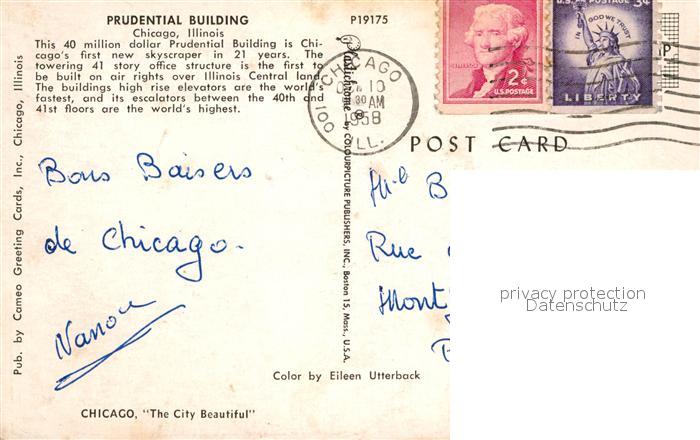 PRUDENTIAL BUILDING
Chicago, Illinois
This 40 million dollar Prudential Building is Chi-
cago's first new skyscraper in 21 years. The
towering 41 story office structure is the first to
be built on air rights over Illinois Central land.
The buildings high rise elevators are the world's
fastest, and its escalators between the 40th and
41st floors are the world's highest.
P19175
Pub. by Cameo Greeting Cards, Inc., Chicago, Illinois
Bons Baisers
de Chicago.
Nanou
CHICAGO, "The City Beautiful"
Plastichrome ® by COLOURPICTURE PUBLISHERS, INC., Boston 15, Mass., U.S.A.
Color by Eileen Utterback
CHICAGO
10
30 AM
1958
ILL.
100
2¢
U.S. POSTAGE
U.S. POSTAGE 3¢
IN GOD WE TRUST
LIBERTY
P
POST CARD
B
Rue
Mont
privacy protection
Datenschutz